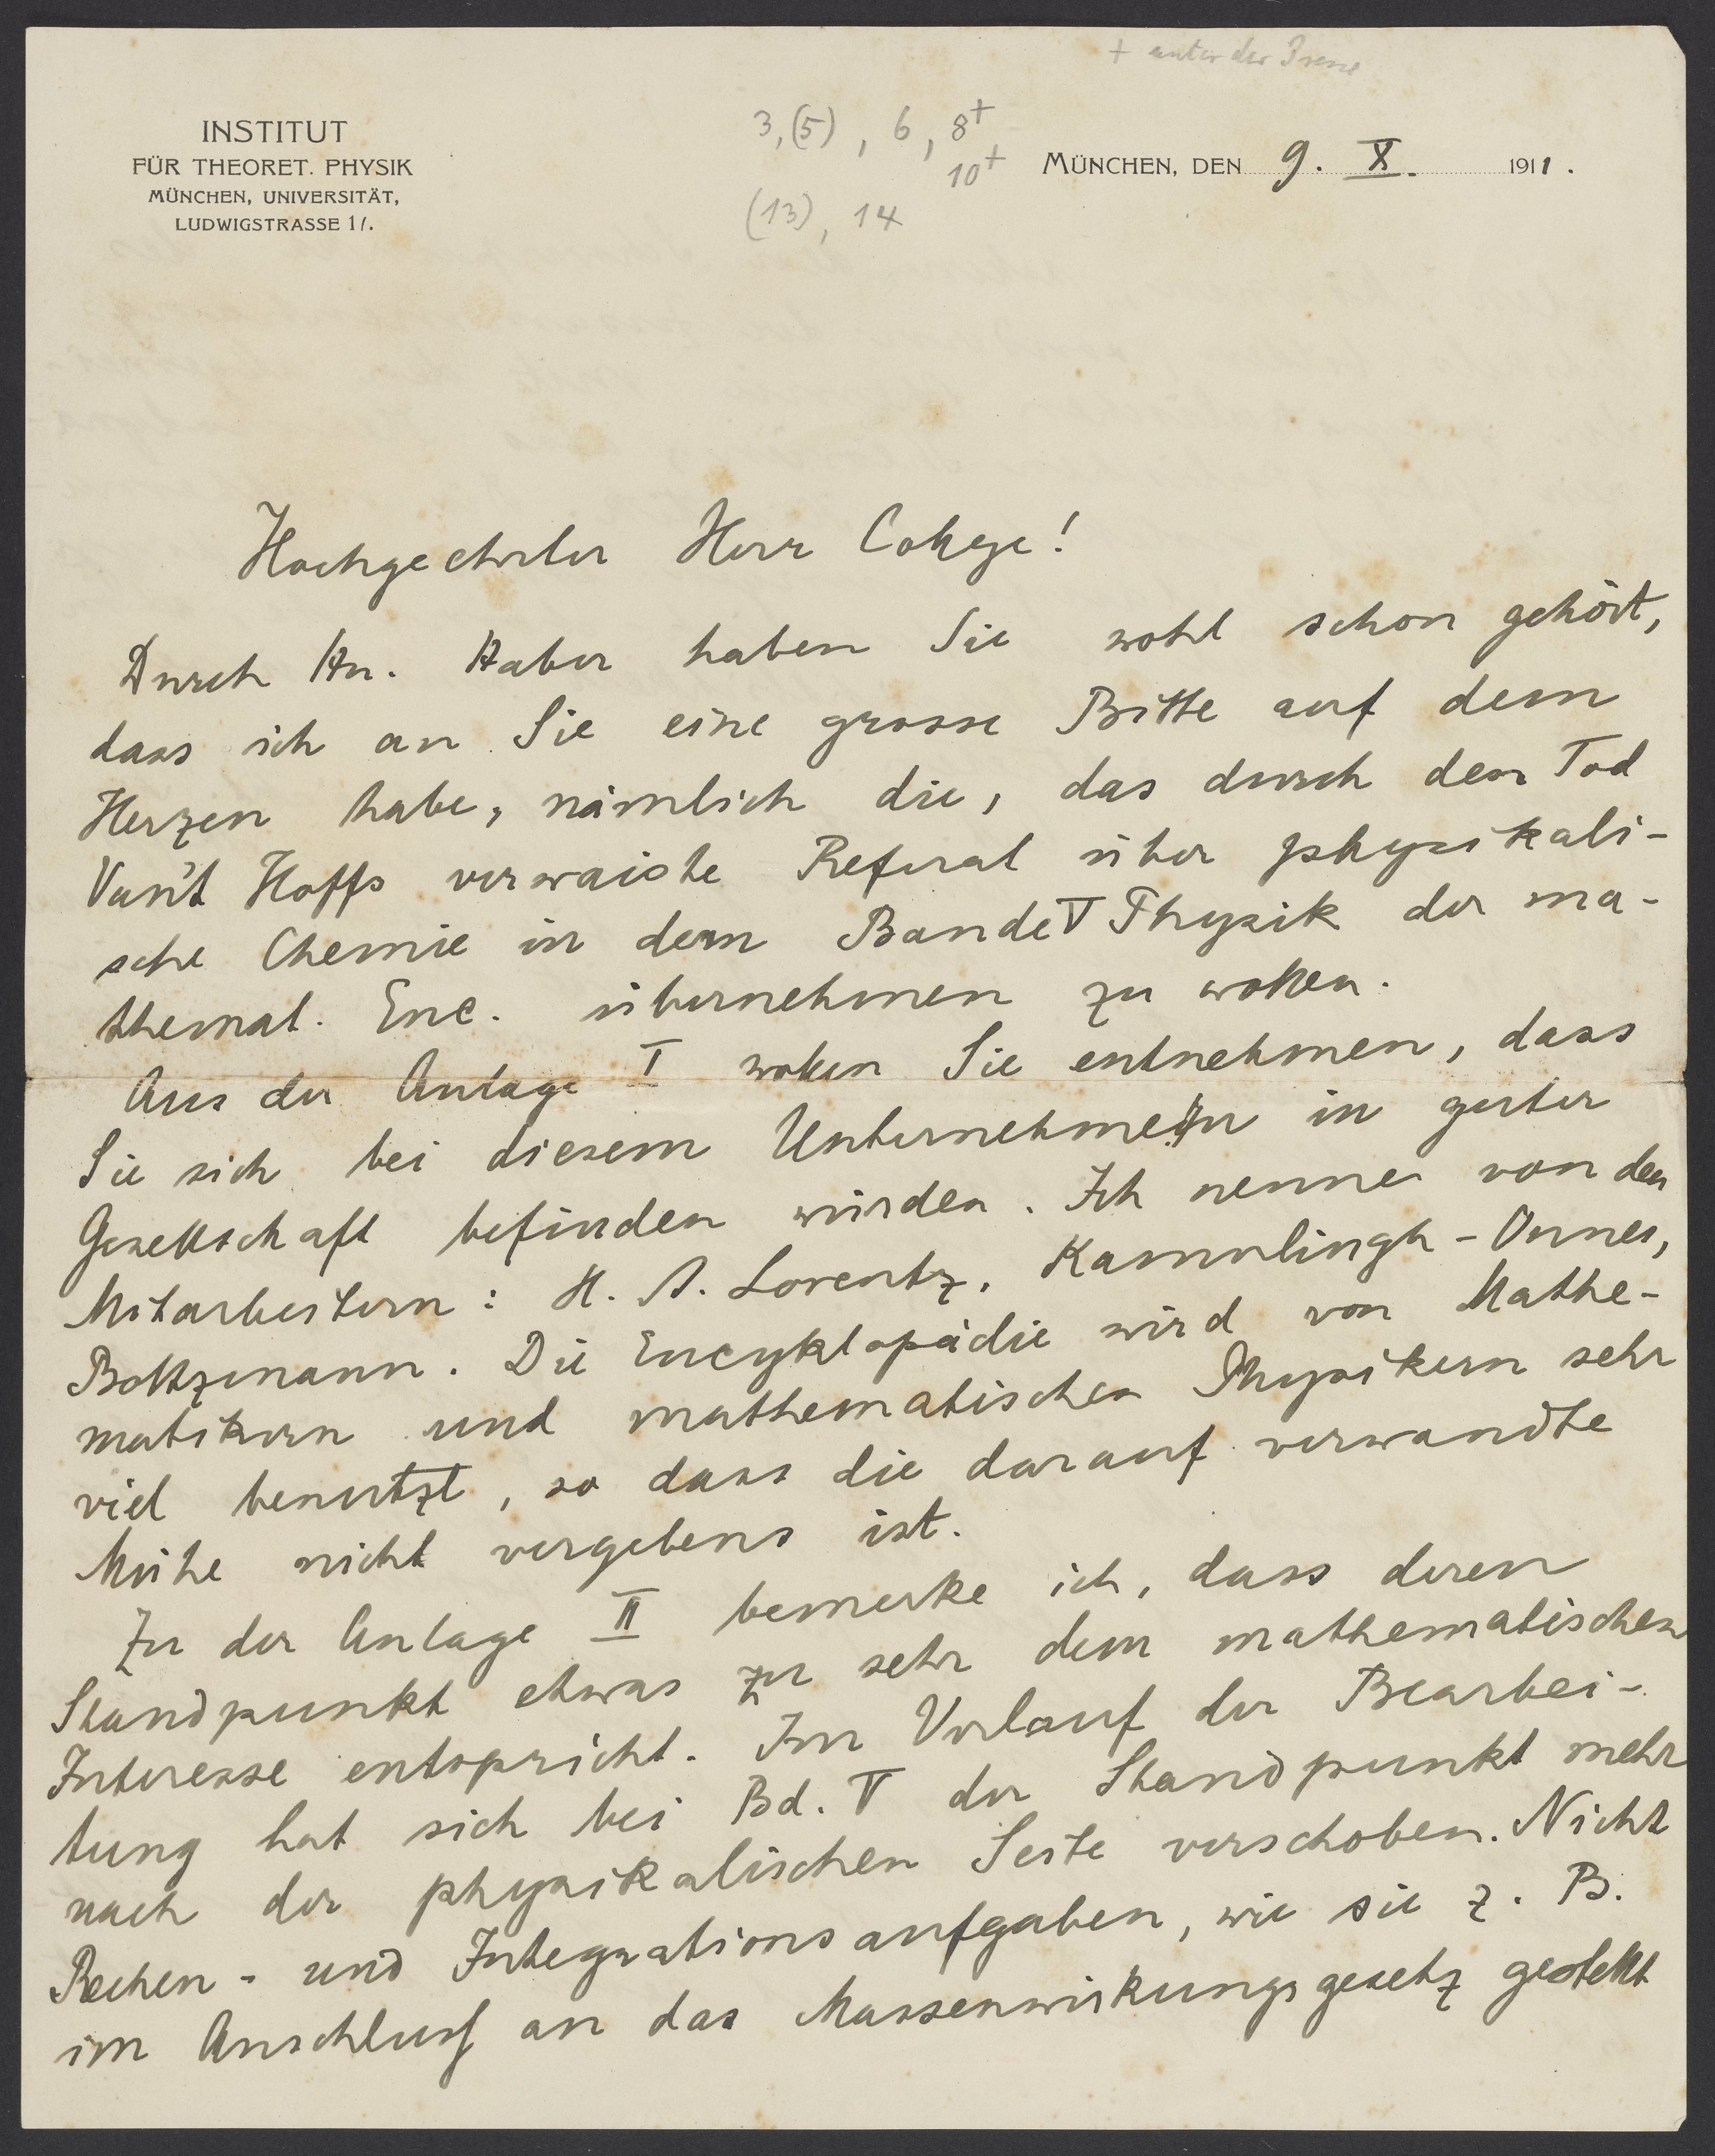 + unter der Presse
INSTITUT
FÜR THEORET. PHYSIK
MÜNCHEN, UNIVERSITÄT,
LUDWIGSTRASSE 17.
3, (5), 6, 8+
10+
(13), 14
MÜNCHEN, DEN 9. X. 1911.
Hochgeehrter Herr College!
Durch Hn. Haber haben Sie wohl schon gehört,
dass ich an Sie eine grosse Bitte auf dem
Herzen habe, nämlich die, das durch den Tod
Van't Hoffs verwaiste Referat über physikali-
sche Chemie in dem Bande V Physik der ma-
themat. Enc. übernehmen zu wollen.
Aus der Anlage I wollen Sie entnehmen, dass
Sie sich bei diesem Unternehmen in guter
Gesellschaft befinden würden. Ich nenne von den
Mitarbeitern: H. A. Lorentz, Kammlingh-Onnes,
Boltzmann. Die Encyklopädie wird von Mathe-
matikern und mathematischen Physikern sehr
viel benutzt, so dass die darauf verwandte
Mühe nicht vergebens ist.
Zu der Anlage II bemerke ich, dass deren
Standpunkt etwas zu sehr dem mathematischen
Interesse entspricht. Im Verlauf der Bearbei-
tung hat sich bei Bd. V der Standpunkt mehr
nach der physikalischen Seite verschoben. Nicht
Rechen- und Integrationsaufgaben, wie sie z. B.
im Anschluss an das Massenwirkungsgesetz gestellt